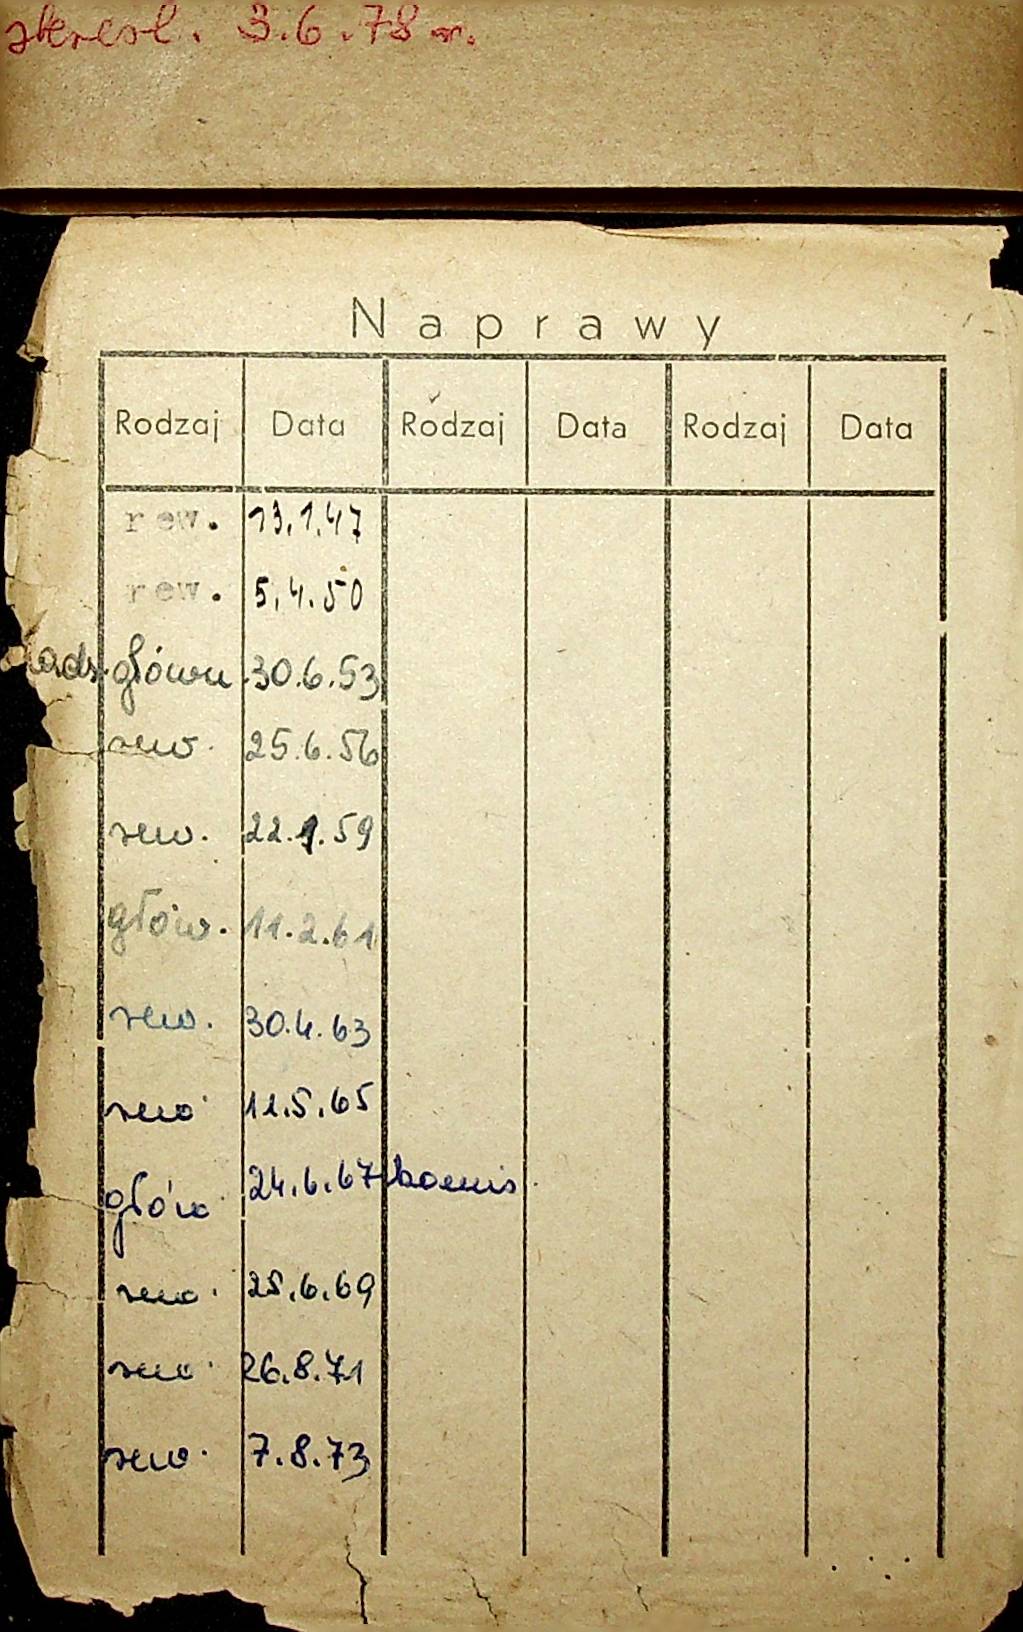 skreśl. 3.6.78 r.
Naprawy
Rodzaj Data Rodzaj Data Rodzaj Data
rew. 13.1.47
rew. 5.4.50
główn. 30.6.53
rew. 25.6.56
rew. 22.9.59
głów. 11.2.61
rew. 30.4.63
rew. 11.5.65
głów. 24.6.67
rew. 25.6.69
rew. 26.8.71
rew. 7.8.73